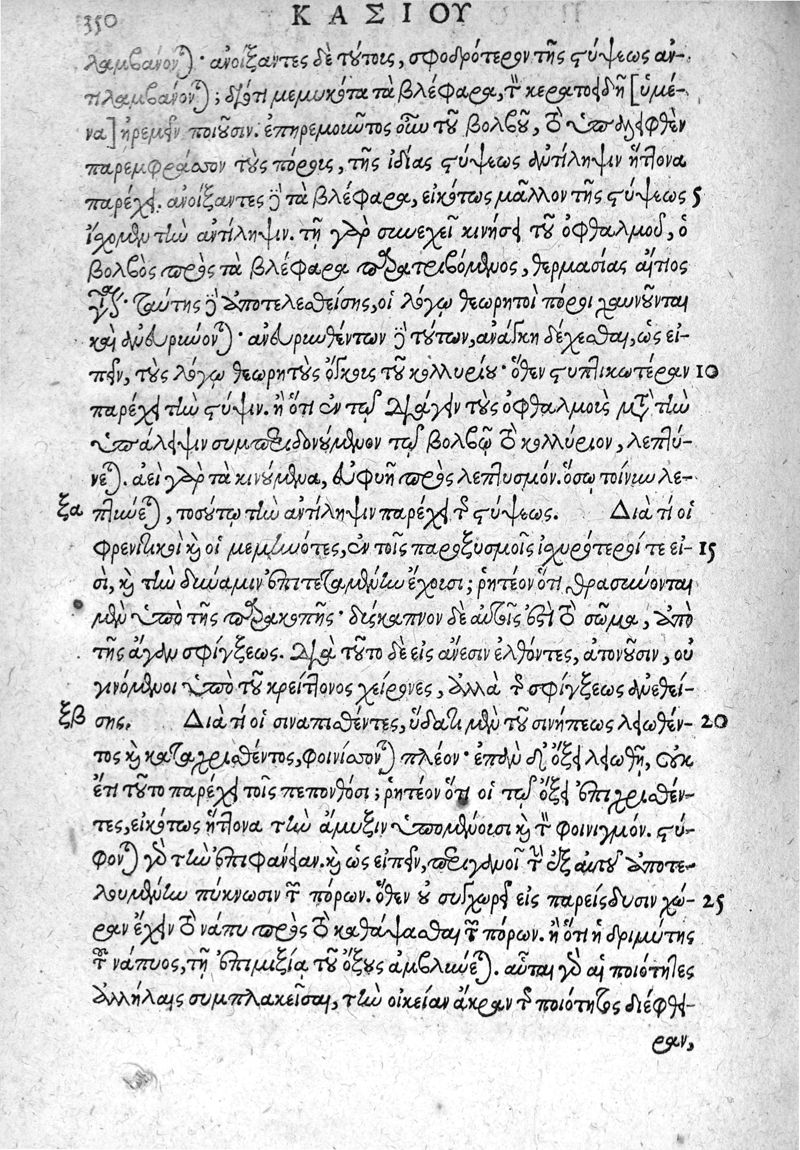 350 ΚΑΣΙΟΥ
λαμβάνονται· ἀνοίξαντες δὲ τούτοις, σφοδρότερον τῆς στύψεως ἀν-
τιλαμβάνονται; διότι μεμυκότα τὰ βλέφαρα, τὸν κερατοειδῆ [ὑμέ-
να] ἠρεμεῖν ποιοῦσιν. ἐπηρεμοιῶτος οὖν τοῦ βολβοῦ, τὸ ὑπαλειφθὲν
παρεμφράσσον τοὺς πόροις, τῆς ἰδίας στύψεως ἀντίληψιν ἥττονα
παρέχει. ἀνοίξαντες δὲ τὰ βλέφαρα, εἰκότως μᾶλλον τῆς στύψεως 5
ἴσχομεν τὴν ἀντίληψιν. τῇ γὰρ συνεχεῖ κινήσει τοῦ ὀφθαλμοῦ, ὁ
βολβὸς πρὸς τὰ βλέφαρα παρατριβόμενος, θερμασίας αἴτιος
γίνεται· ταύτης δὲ ἀποτελεσθείσης, οἱ λόγῳ θεωρητοὶ πόροι χαυνοῦνται
καὶ ἀνευρύνονται· ἀνευρυνθέντων δὲ τούτων, ἀνάγκη δέχεσθαι, ὡς εἰ-
πεῖν, τοὺς λόγῳ θεωρητοὺς ὄγκοις τοῦ κολλυρίου· ὅθεν στυπτικωτέραν 10
παρέχει τὴν στύψιν. ἢ ὅτι ἐν τῷ διάγειν τοὺς ὀφθαλμοὺς μετὰ τὴν
ὑπάλειψιν συμπεριδονούμενον τῷ βολβῷ τὸ κολλύριον, λεπτύ-
νεται. ἀεὶ γὰρ τὰ κινούμενα, εὐφυῆ πρὸς λεπτυσμόν. ὅσῳ τοίνυν λε-
ξα πτύνεται, τοσούτῳ τὴν ἀντίληψιν παρέχει τῆς στύψεως. Διὰ τί οἱ
φρενιτικοὶ καὶ οἱ μεμηνότες, ἐν τοῖς παροξυσμοῖς ἰσχυρότεροί τε εἰ- 15
σι, καὶ τὴν δύναμιν ἐπιτεταμένην ἔχοισι; ῥητέον ὅτι θρασύνονται
μὲν ὑπὸ τῆς παρακοπῆς· δίσκαπνον δὲ αὐτοῖς ἐστὶ τὸ σῶμα, ἀπὸ
τῆς ἄγαν σφίγξεως. Διὰ τοῦτο δὲ εἰς ἄνεσιν ἐλθόντες, ἀτονοῦσιν, οὐ
γινόμενοι ὑπὸ τοῦ κρείττονος χείρονες, ἀλλὰ τῆς σφίγξεως ἀνεθεί-
ξβ σης. Διὰ τί οἱ σιναπισθέντες, ὕδατι μὲν τοῦ σινήπεως λειωθέν- 20
τος καὶ καταχρισθέντος, φοινίσσονται πλέον· ἐπὰν δ' ὄξει λειωθῇ, οὐκ
ἔτι τοῦτο παρέχει τοῖς πεπονθόσι; ῥητέον ὅτι οἱ τῷ ὄξει ἐπιχρισθέν-
τες, εἰκότως ἥττονα τὴν ἄμυξιν ὑπομένοισι καὶ τὸν φοινιγμόν. στύ-
φονται γὰρ τὴν ἐπιφάνειαν. καὶ ὡς εἰπεῖν, περιγαμοῖ τὴν ὄξει αὐτοῦ ἀποτε-
λουμένην πύκνωσιν τῶν πόρων. ὅθεν οὐ συγχωρεῖ εἰς παρείσδυσιν χώ- 25
ραν ἔχειν τὸ νάπυ πρὸς τὸ καθάψασθαι τῶν πόρων. ἢ ὅτι ἡ δριμύτης
τοῦ νάπυος, τῇ ἐπιμιξίᾳ τοῦ ὄξους ἀμβλύνεται. αὗται γὰρ αἱ ποιότητες
ἀλλήλαις συμπλακεῖσαι, τὴν οἰκείαν ἄκραν τῆς ποιότητος διέφθει-
ραν,